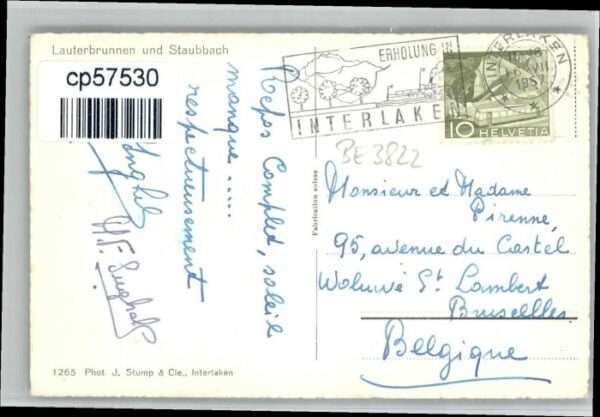 Lauterbrunnen und Staubbach
cp57530
Repos Complet, soleil
manque.....
respectueusement
ERHOLUNG IN
INTERLAKEN
INTERLAKEN
1957
10 HELVETIA
BE 3822
Fabrication suisse
Monsieur et Madame
Pirenne,
95, avenue du Castel
Woluwé St Lambert
Bruxelles.
Belgique
1265 Phot. J. Stump & Cie., Interlaken